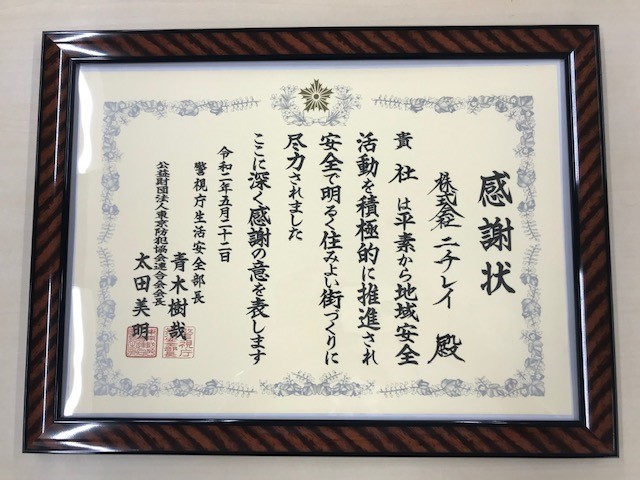 感謝状
株式会社 ニチレイ 殿
貴社は平素から地域安全
活動を積極的に推進され
安全で明るく住みよい街づくりに
尽力されました
ここに深く感謝の意を表します
令和二年五月二十一日
警視庁生活安全部長
青木樹哉
公益財団法人東京防犯協会連合会会長
太田美明